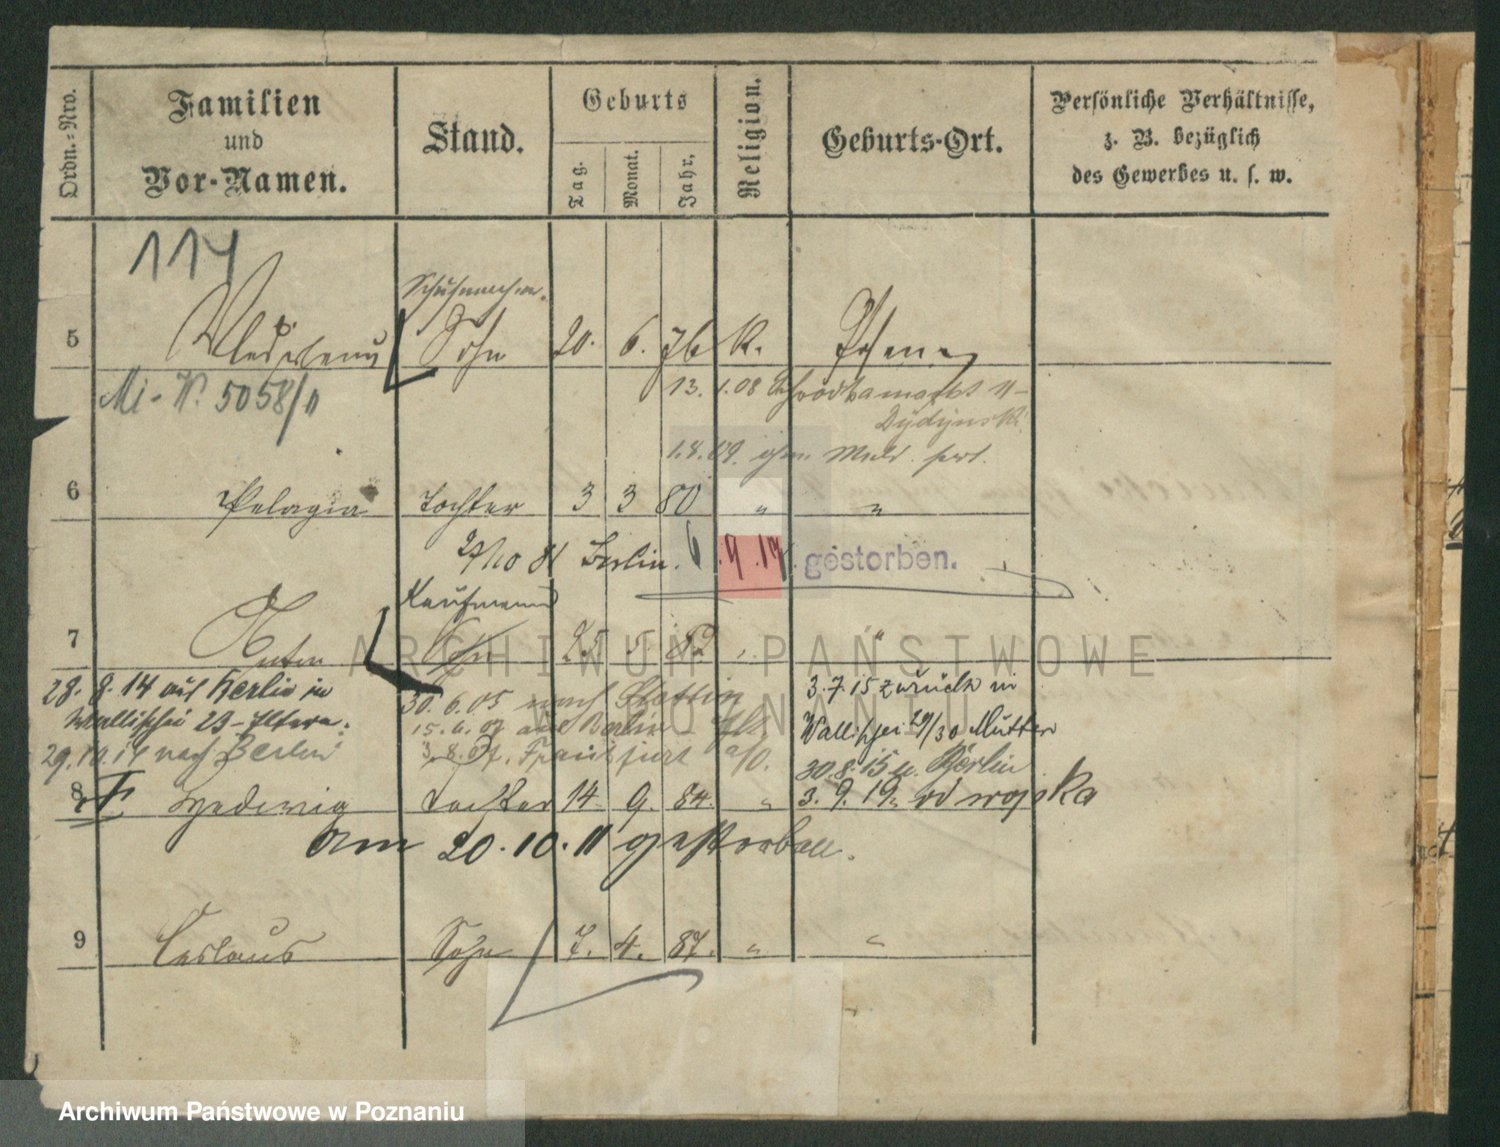 Ordn.=Nro.
Familien
und
Vor-Namen.
Stand.
Geburts
Tag.
Monat.
Jahr.
Religion.
Geburts-Ort.
Persönliche Verhältnisse,
z. B. bezüglich
des Gewerbes u. s. w.
114
Schuhmacher.
5 Sohn 20. 6. 76 K. Posen
Mi - N. 5058/
13. 1.08
Dydynski
1.8.09.
6 Pelagia Tochter 3 3 80 " "
Berlin. 6.9.14. gestorben.
Kaufmann
7 Anton Sohn 25 5. 82 "
28. 8. 14 aus Berlin in
Wallischei 29 - Eltern.
29.10.14 nach Berlin
30.6.05 nach Stettin
15.6.07 aus Berlin
3.8.07. Frankfurt a/O.
3.7.15 zurück in
Wallischei 29/30 Mutter
30.8.15 n. Berlin
3.9.19. od wojska
8 Hedwig Tochter 14 9. 84. "
Am 20.10.11 gestorben.
9 Ceslaus Sohn 7. 4. 87. " "
ARCHIWUM PAŃSTWOWE
W POZNANIU
Archiwum Państwowe w Poznaniu